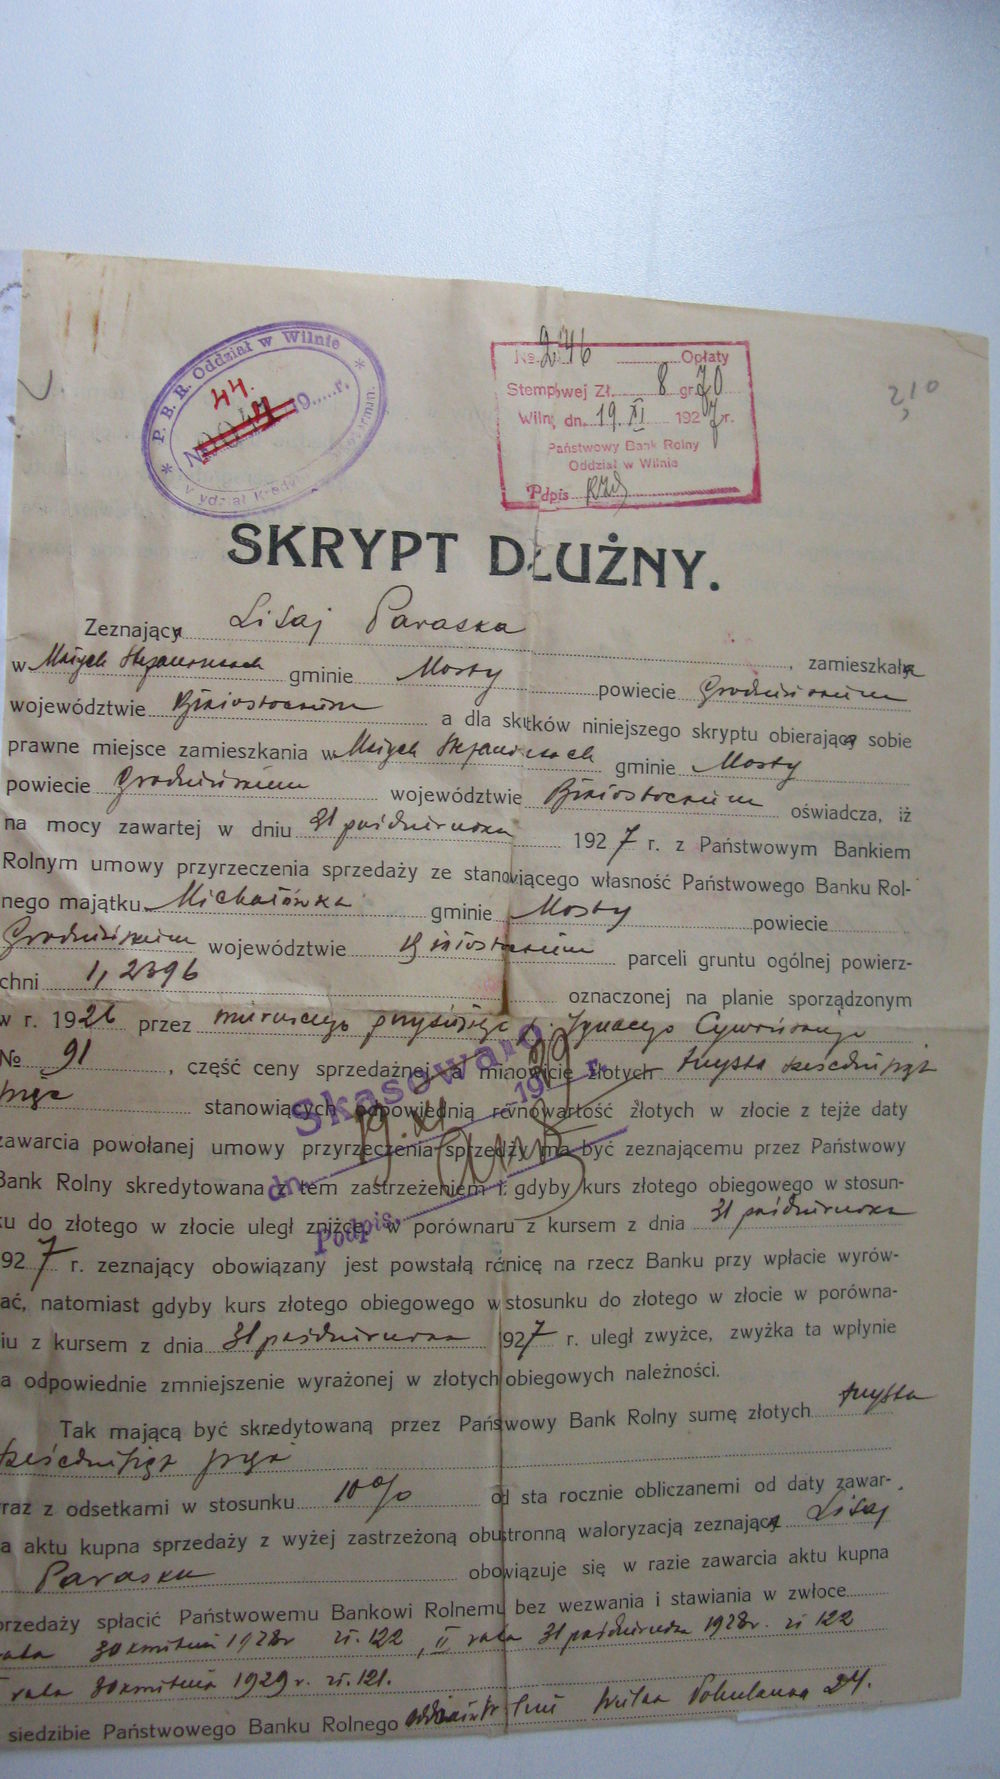 P. B. R. Oddział w Wilnie
44.
№
19.....r.
№ 246 Opłaty
Stemplowej Zł. 8 gr. 70
Wilno, dn. 19. XI 1927 r.
Państwowy Bank Rolny
Oddział w Wilnie
Podpis
2,10
SKRYPT DŁUŻNY.
Zeznająca Lisaj Paraska, zamieszkała
w Małych Stepaniszkach gminie Mosty powiecie Grodzieńskiem
województwie Białostockiem a dla skutków niniejszego skryptu obierająca sobie
prawne miejsce zamieszkania w Małych Stepaniszkach gminie Mosty
powiecie Grodzieńskiem województwie Białostockiem oświadcza, iż
na mocy zawartej w dniu 31 października 1927 r. z Państwowym Bankiem
Rolnym umowy przyrzeczenia sprzedaży ze stanowiącego własność Państwowego Banku Rol-
nego majątku Michałówka gminie Mosty powiecie
Grodzieńskiem województwie Białostockiem parceli gruntu ogólnej powierz-
chni 1,2396 oznaczonej na planie sporządzonym
w r. 1926 przez mierniczego przysięgłego p. Ignacego
№ 91, część ceny sprzedażnej a mianowicie złotych trzysta sześćdziesiąt
pięć stanowiących odpowiednią równowartość złotych w złocie z tejże daty
zawarcia powołanej umowy przyrzeczenia sprzedży ma być zeznającemu przez Państwowy
Bank Rolny skredytowana z tem zastrzeżeniem i gdyby kurs złotego obiegowego w stosun-
ku do złotego w złocie uległ zniżce, w porównaru z kursem z dnia 31 października
927 r. zeznający obowiązany jest powstałą różnicę na rzecz Banku przy wpłacie wyrów-
ać, natomiast gdyby kurs złotego obiegowego w stosunku do złotego w złocie w porówna-
iu z kursem z dnia 31 października 1927 r. uległ zwyżce, zwyżka ta wpłynie
a odpowiednie zmniejszenie wyrażonej w złotych obiegowych należności.
Skasowano
dn. 19. XI 19 r.
Podpis
Tak mającą być skredytowaną przez Państwowy Bank Rolny sumę złotych trzysta
sześćdziesiąt pięć
raz z odsetkami w stosunku 10% od sta rocznie obliczanemi od daty zawar-
a aktu kupna sprzedaży z wyżej zastrzeżoną obustronną waloryzacją zeznająca Lisaj
Paraska obowiązuje się w razie zawarcia aktu kupna
przedaży spłacić Państwowemu Bankowi Rolnemu bez wezwania i stawiania w zwłoce
rata 30 kwietnia 1928 r zł. 122, II rata 31 października 1928 r. zł 122
rata 30 kwietnia 1929 r. zł. 121.
siedzibie Państwowego Banku Rolnego Pohulanka 24.